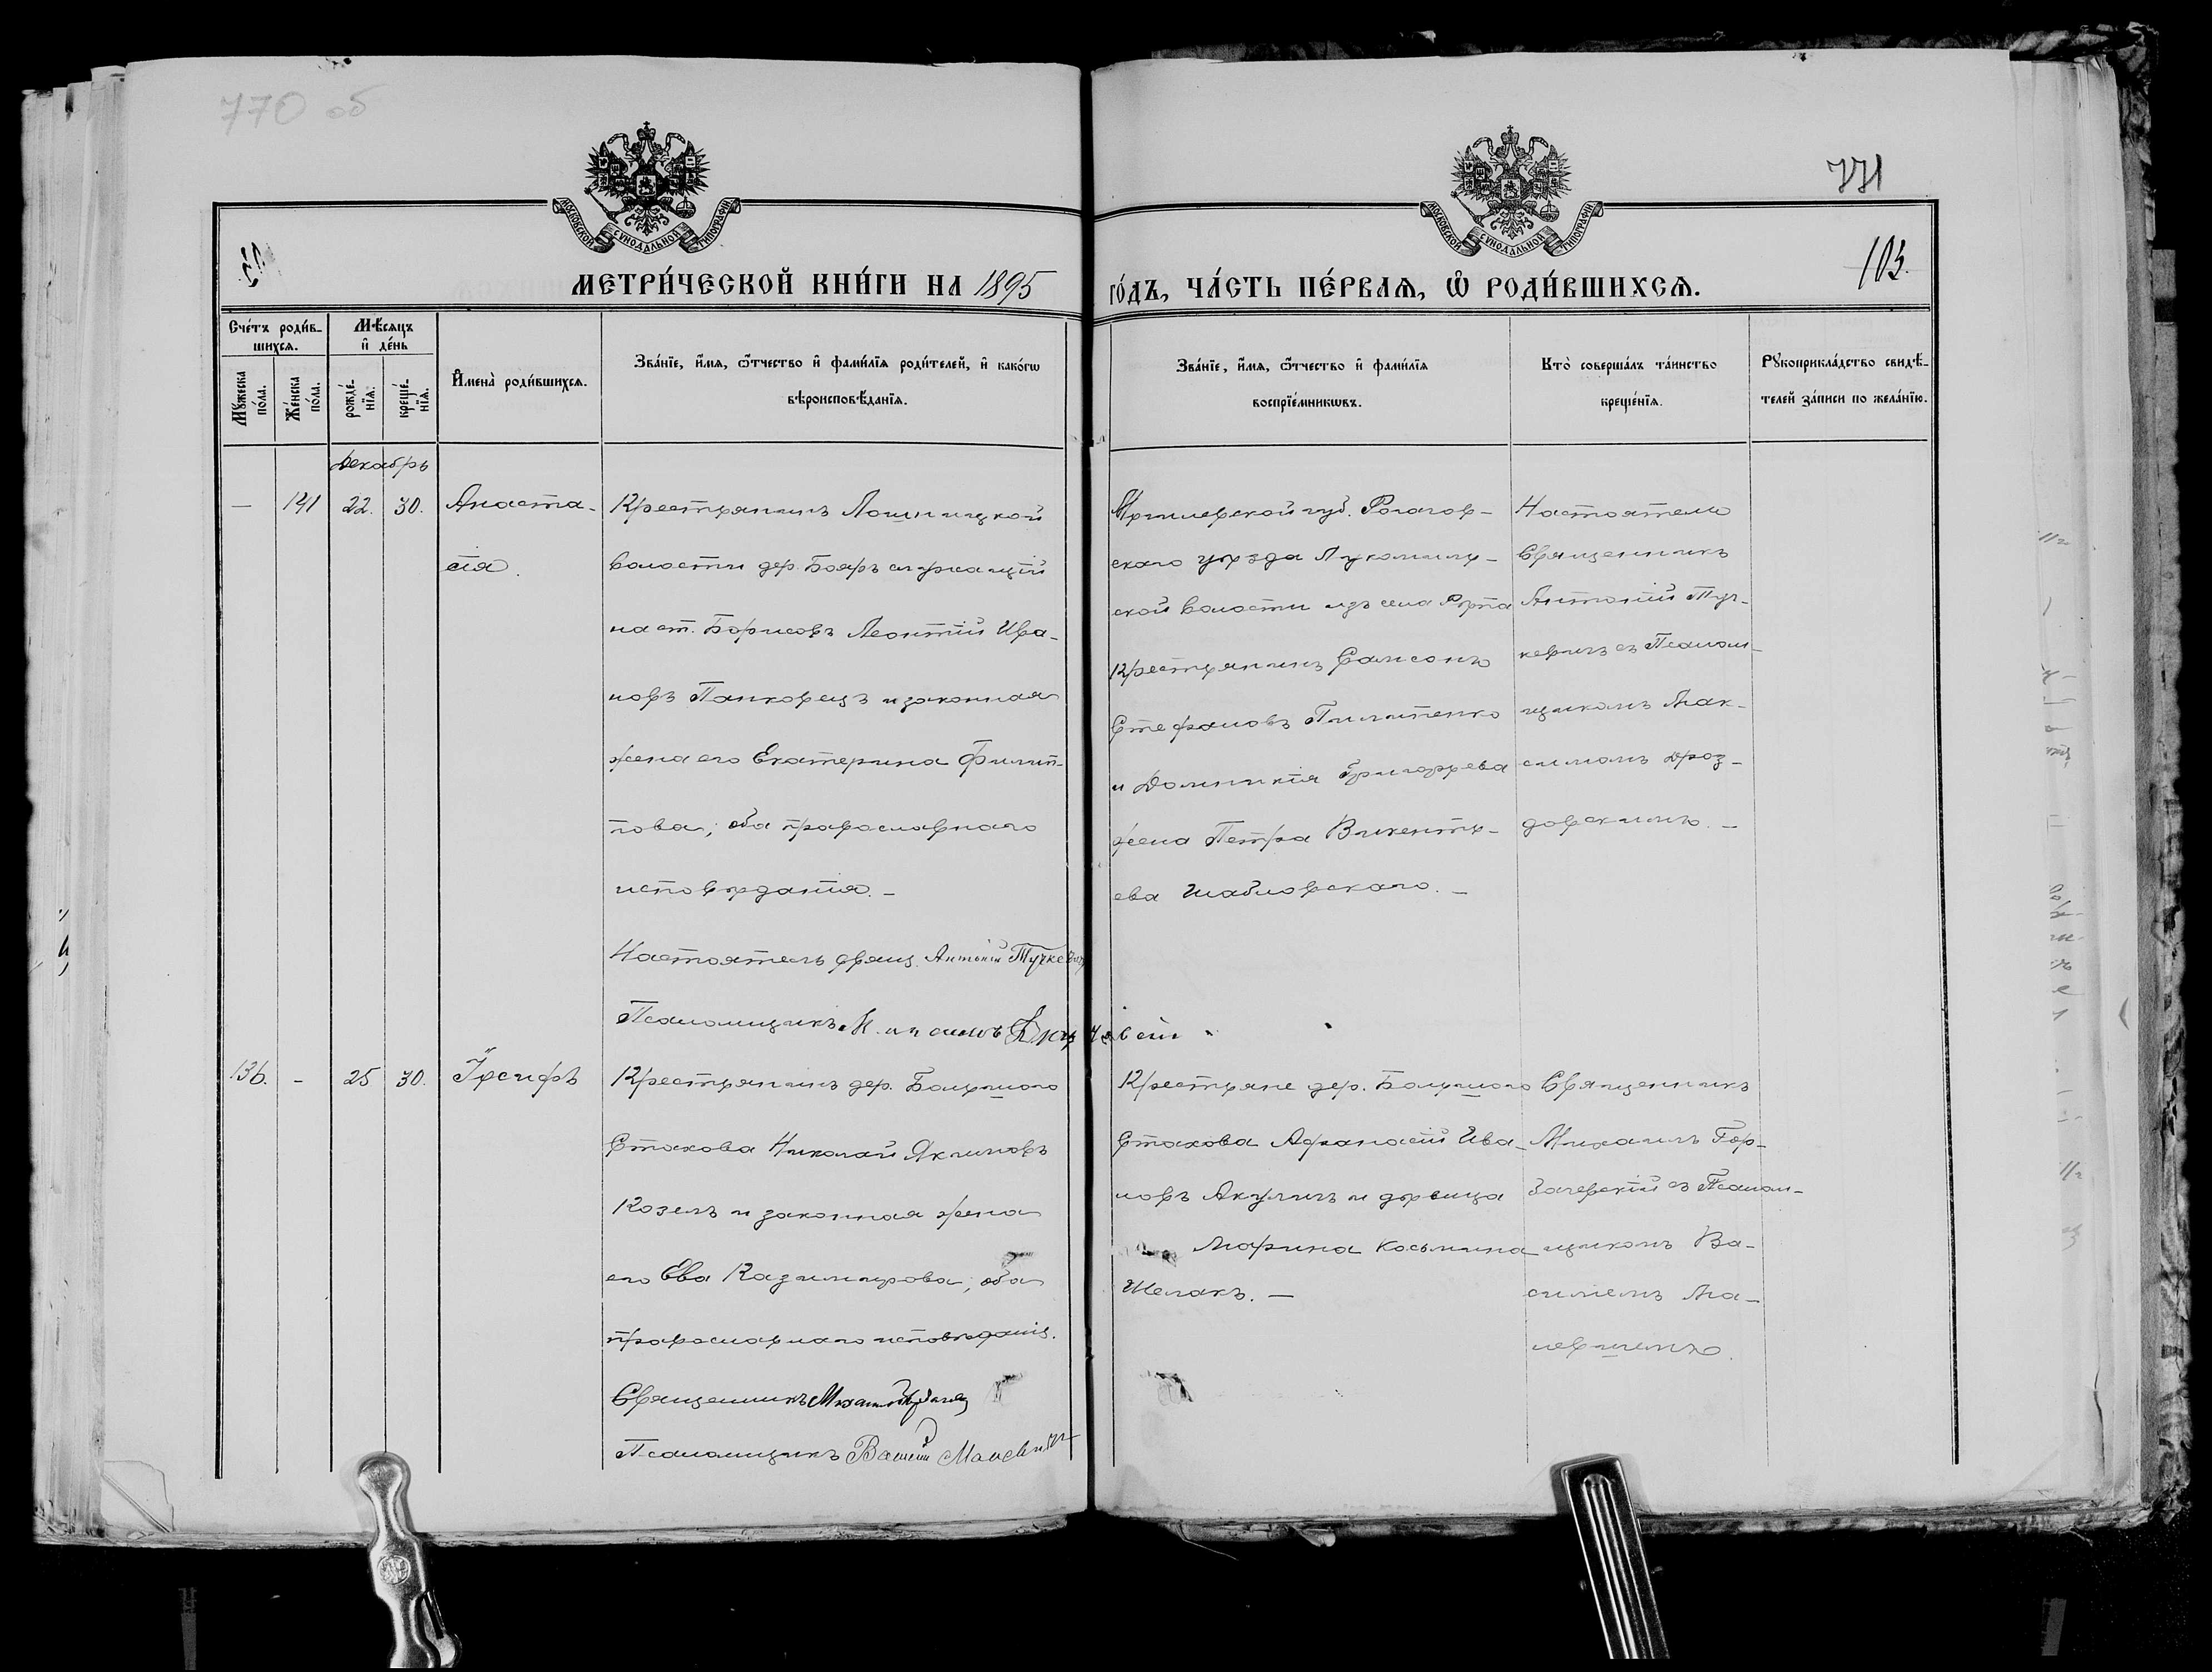 770 об
771
МОСКОВСКОЙ СѴНОДАЛЬНОЙ ТИПОГРАФІИ
МОСКОВСКОЙ СѴНОДАЛЬНОЙ ТИПОГРАФІИ
103.
МЕТРИ́ЧЕСКОЙ КНИ́ГИ НА 1895
ГО́ДЪ, ЧА́СТЬ ПЕ́РВАЯ, Ѽ РОДИ́ВШИХСЯ.
Сче́тъ роди́в-
шихся.
Мꙋжеска по́ла.
Же́нска по́ла.
Мѣ́сяцъ
и де́нь
рожде́-
нїя.
креще́-
нїя.
Имена̀ роди́вшихся.
Зва́нїе, и́мя, ѻ́тчество и фами́лїя роди́телей, и како́гѡ
вѣроисповѣ́данїя.
Зва́нїе, и́мя, ѻ́тчество и фами́лїя
воспрїе́мникѡвъ.
Кто̀ соверша́лъ та́инство
креще́нїя.
Рꙋкоприкла́дство свидѣ́-
телей за́писи по жела́нїю.
Декабрь
—
141
22.
30.
Анаста-
сія.
Крестьянинъ Лошницкой
волости дер. Бояръ служащій
на ст. Борисовъ Леонтій Ива-
новъ Панковецъ и законная
жена его Екатерина Филип-
пова; оба православнаго
исповѣданія. —
Настоятель свящ. Антоній Тучкевичъ
Псаломщикъ
Могилевской губ. Рогачев-
скаго уѣзда Лукомль-
ской волости изъ села
Крестьянинъ Самсонъ
Стефановъ Пилипенко
и Домникія Григорьева
жена Петра Викентье-
ева Шабловскаго. —
Настоятель
Священникъ
Антоній Туч-
кевичъ съ Псалом-
щикомъ Мак-
симомъ Дроз-
довскимъ. —
136.
—
25
30.
Іосифъ
Крестьянинъ дер. Большого
Стахова Николай Якимовъ
Козелъ и законная жена
его Ева Казимирова; оба
православнаго исповѣданія.
Священникъ Михаилъ
Псаломщикъ Василій Малевичъ
Крестьяне дер. Большого
Стахова Афанасій Ива-
новъ Акуличъ и дѣвица
Марина Косьмина
Шелакъ. —
Священникъ
Михаилъ Гор-
зачевскій съ Псалом-
щикомъ Ва-
силіемъ Ма-
левичемъ.